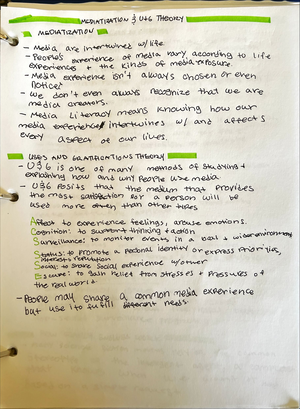 MEDIATIZATION & U&G THEORY
MEDIATIZATION
- Media are intertwined w/ life
- People's experience of media vary according to life
experiences + the kinds of media exposure.
- Media experience isn't always chosen or even
noticed
- We don't even always recognize that we are
media creators.
- Media Literacy means knowing how our
media experience intertwines w/ and affects
every aspect of our lives.
USES AND GRATIFICATIONS THEORY
- U&G is one of many methods of studying +
explaining how and why people use media
- U&G posits that the medium that provides
the most satisfaction for a person will be
used more often than other types
Affect: to experience feelings, arouse emotions.
Cognition: to support thinking + action
Surveillance: to monitor events in a local + wider environment
Status: to promote a personal identity or express priorities,
interests reputation
Social: to share social experience w/ other
Escape: to seek relief from stresses + pressures of
the real world.
- People may share a common media experience
but use it to fulfill different needs